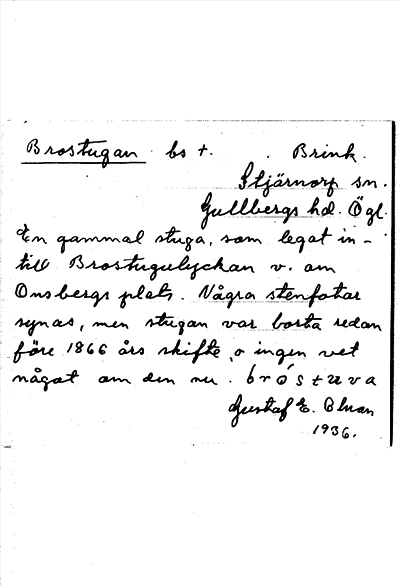 Brostugan bs +. Brink.
Stjärnorp sn.
Gullbergs hd. Ögl.
En gammal stuga, som legat in-
till Brostugulyckan v. om
Onsbergs plats. Några stenfotar
synas, men stugan var borta redan
före 1866 års skifte, o ingen vet
något om den nu. bróstuva
Gustaf E. Bluan
1936.